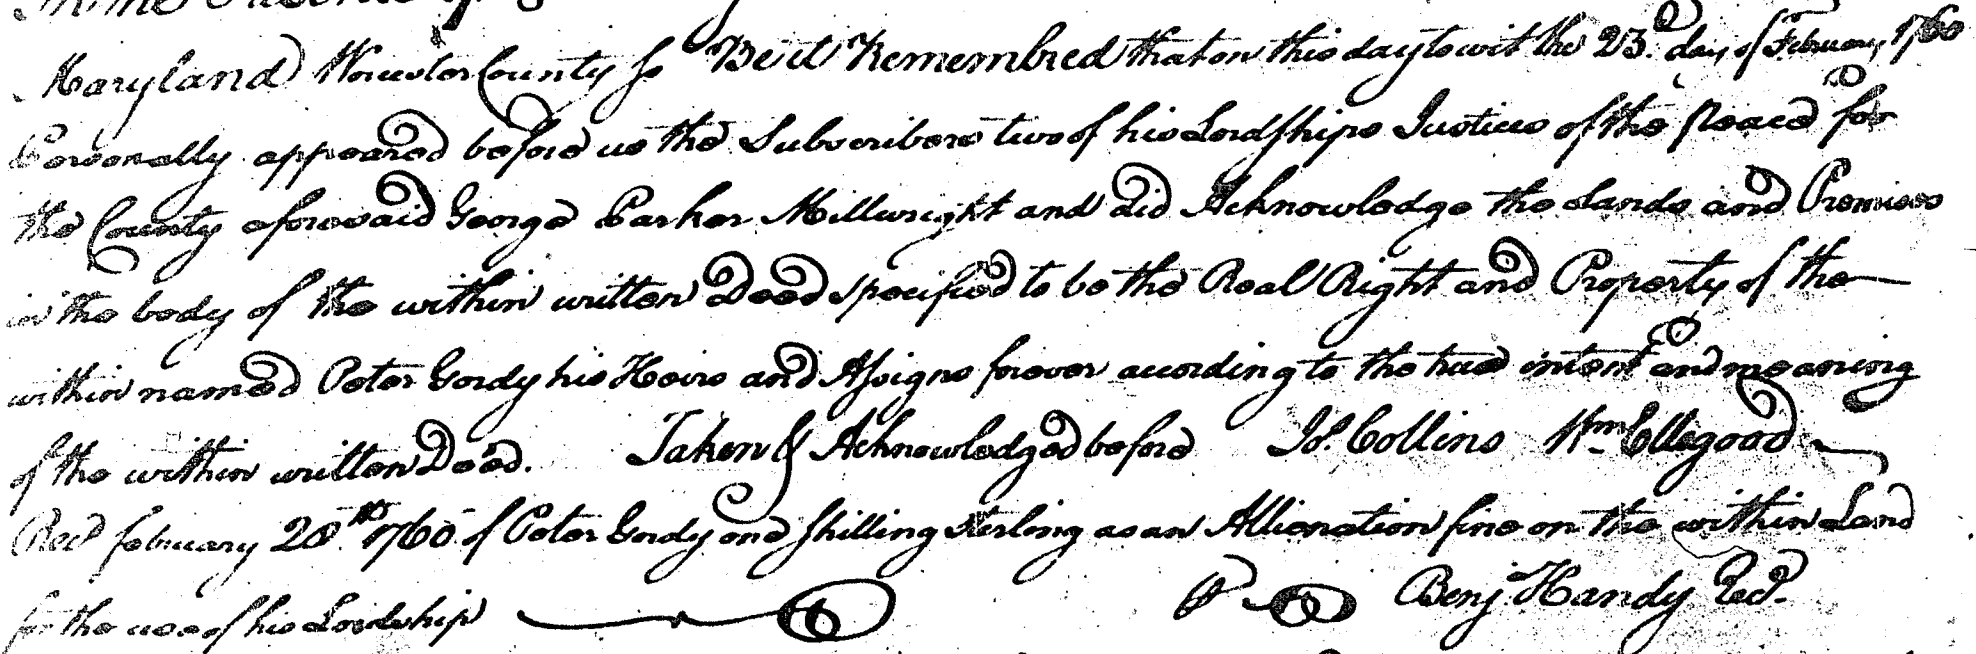 Maryland Worcester County ss Be it Remembred that on this day to wit the 23d. day of February 1760
Personally appeared before us the Subscribers two of his Lordships Justices of the Peace for
the County aforesaid George Parker Millwright and did Acknowledge the Lands and Premises
in the body of the within written Deed specified to be the Real Right and Property of the
within named Peter Gordy his Heirs and Assigns forever acording to the true intent and meaning
of the within written Deed. Taken & Acknowledged before Js. Collins Wm Ellegood
Recd february 28th 1760 of Peter Gordy one shilling Sterling as an Allienation fine on the within Land
for the use of his Lordship Benj. Handy Recr.